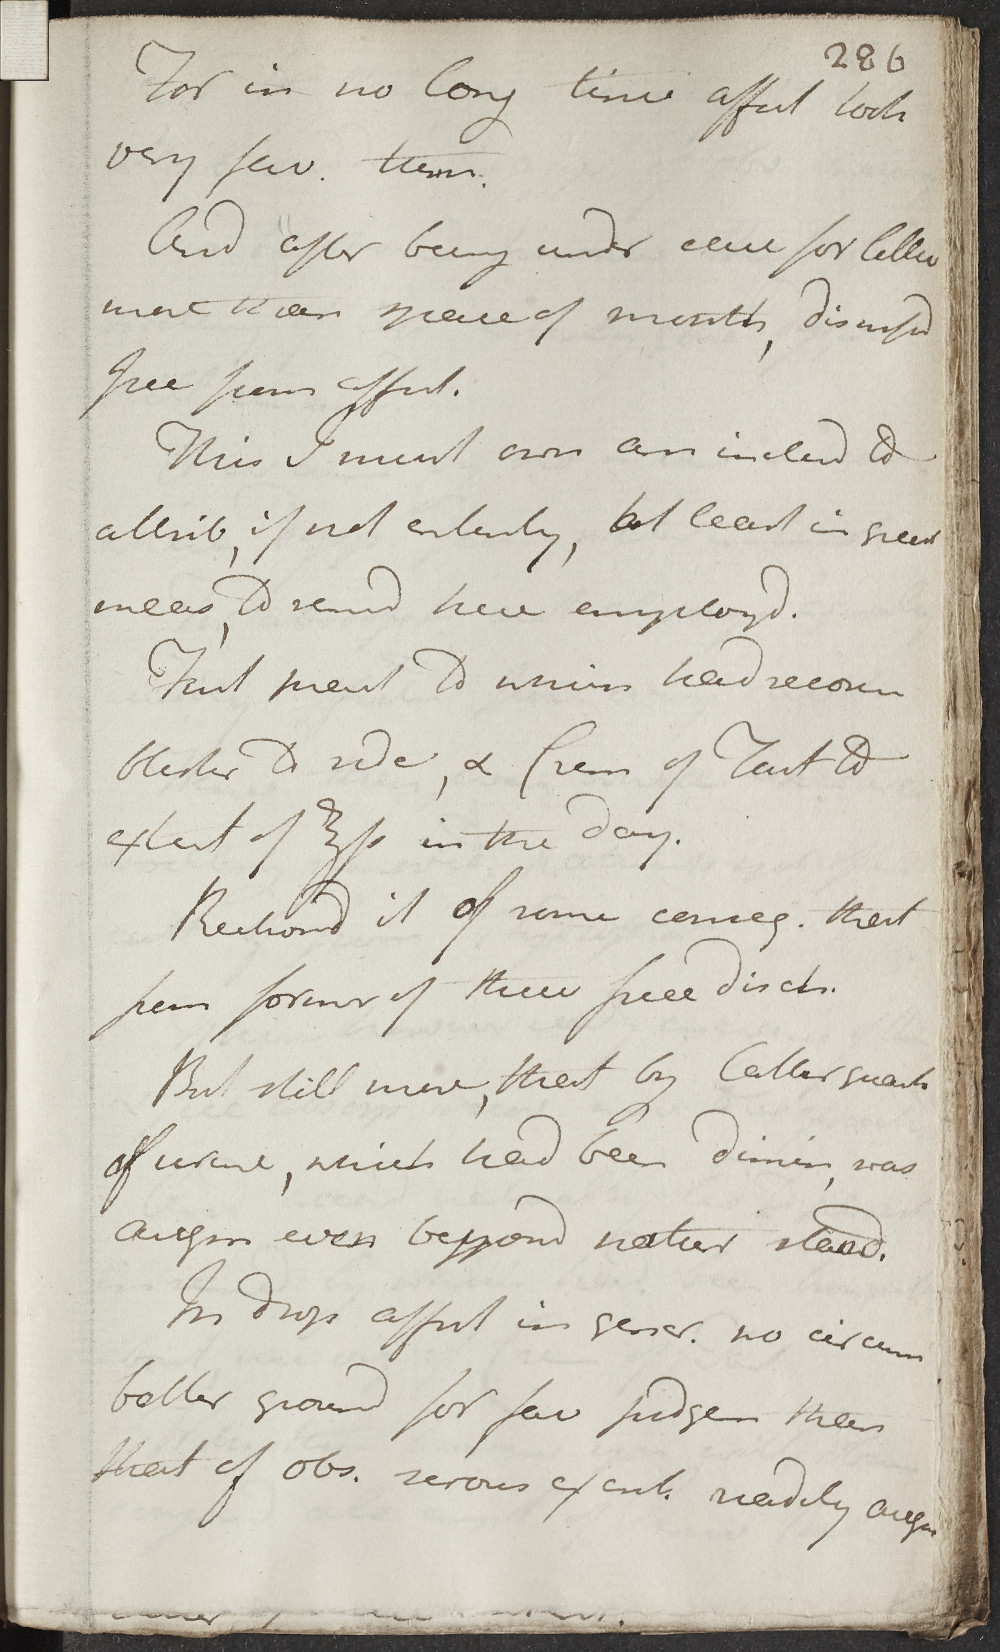 286
For in no long time affect took
very fav. turn.
And after being under care for little
more than space of month, dismissd
free from affect.
This I must own am inclind to
attrib, if not entirely, at least in great
meas, to remed here employd.
First present to which had recour
blister to side, & Crem of Tart to
extent of ℥ss in the day.
Reckond it of some conseq. that
from former of these free disch.
But still more, that by latter quant
of urine, which had been dimin, was
augm even beyyond natur stand.
In drops affect in gener. no circum
better ground for fav judgem than
that of obs. serous excret. readily augm